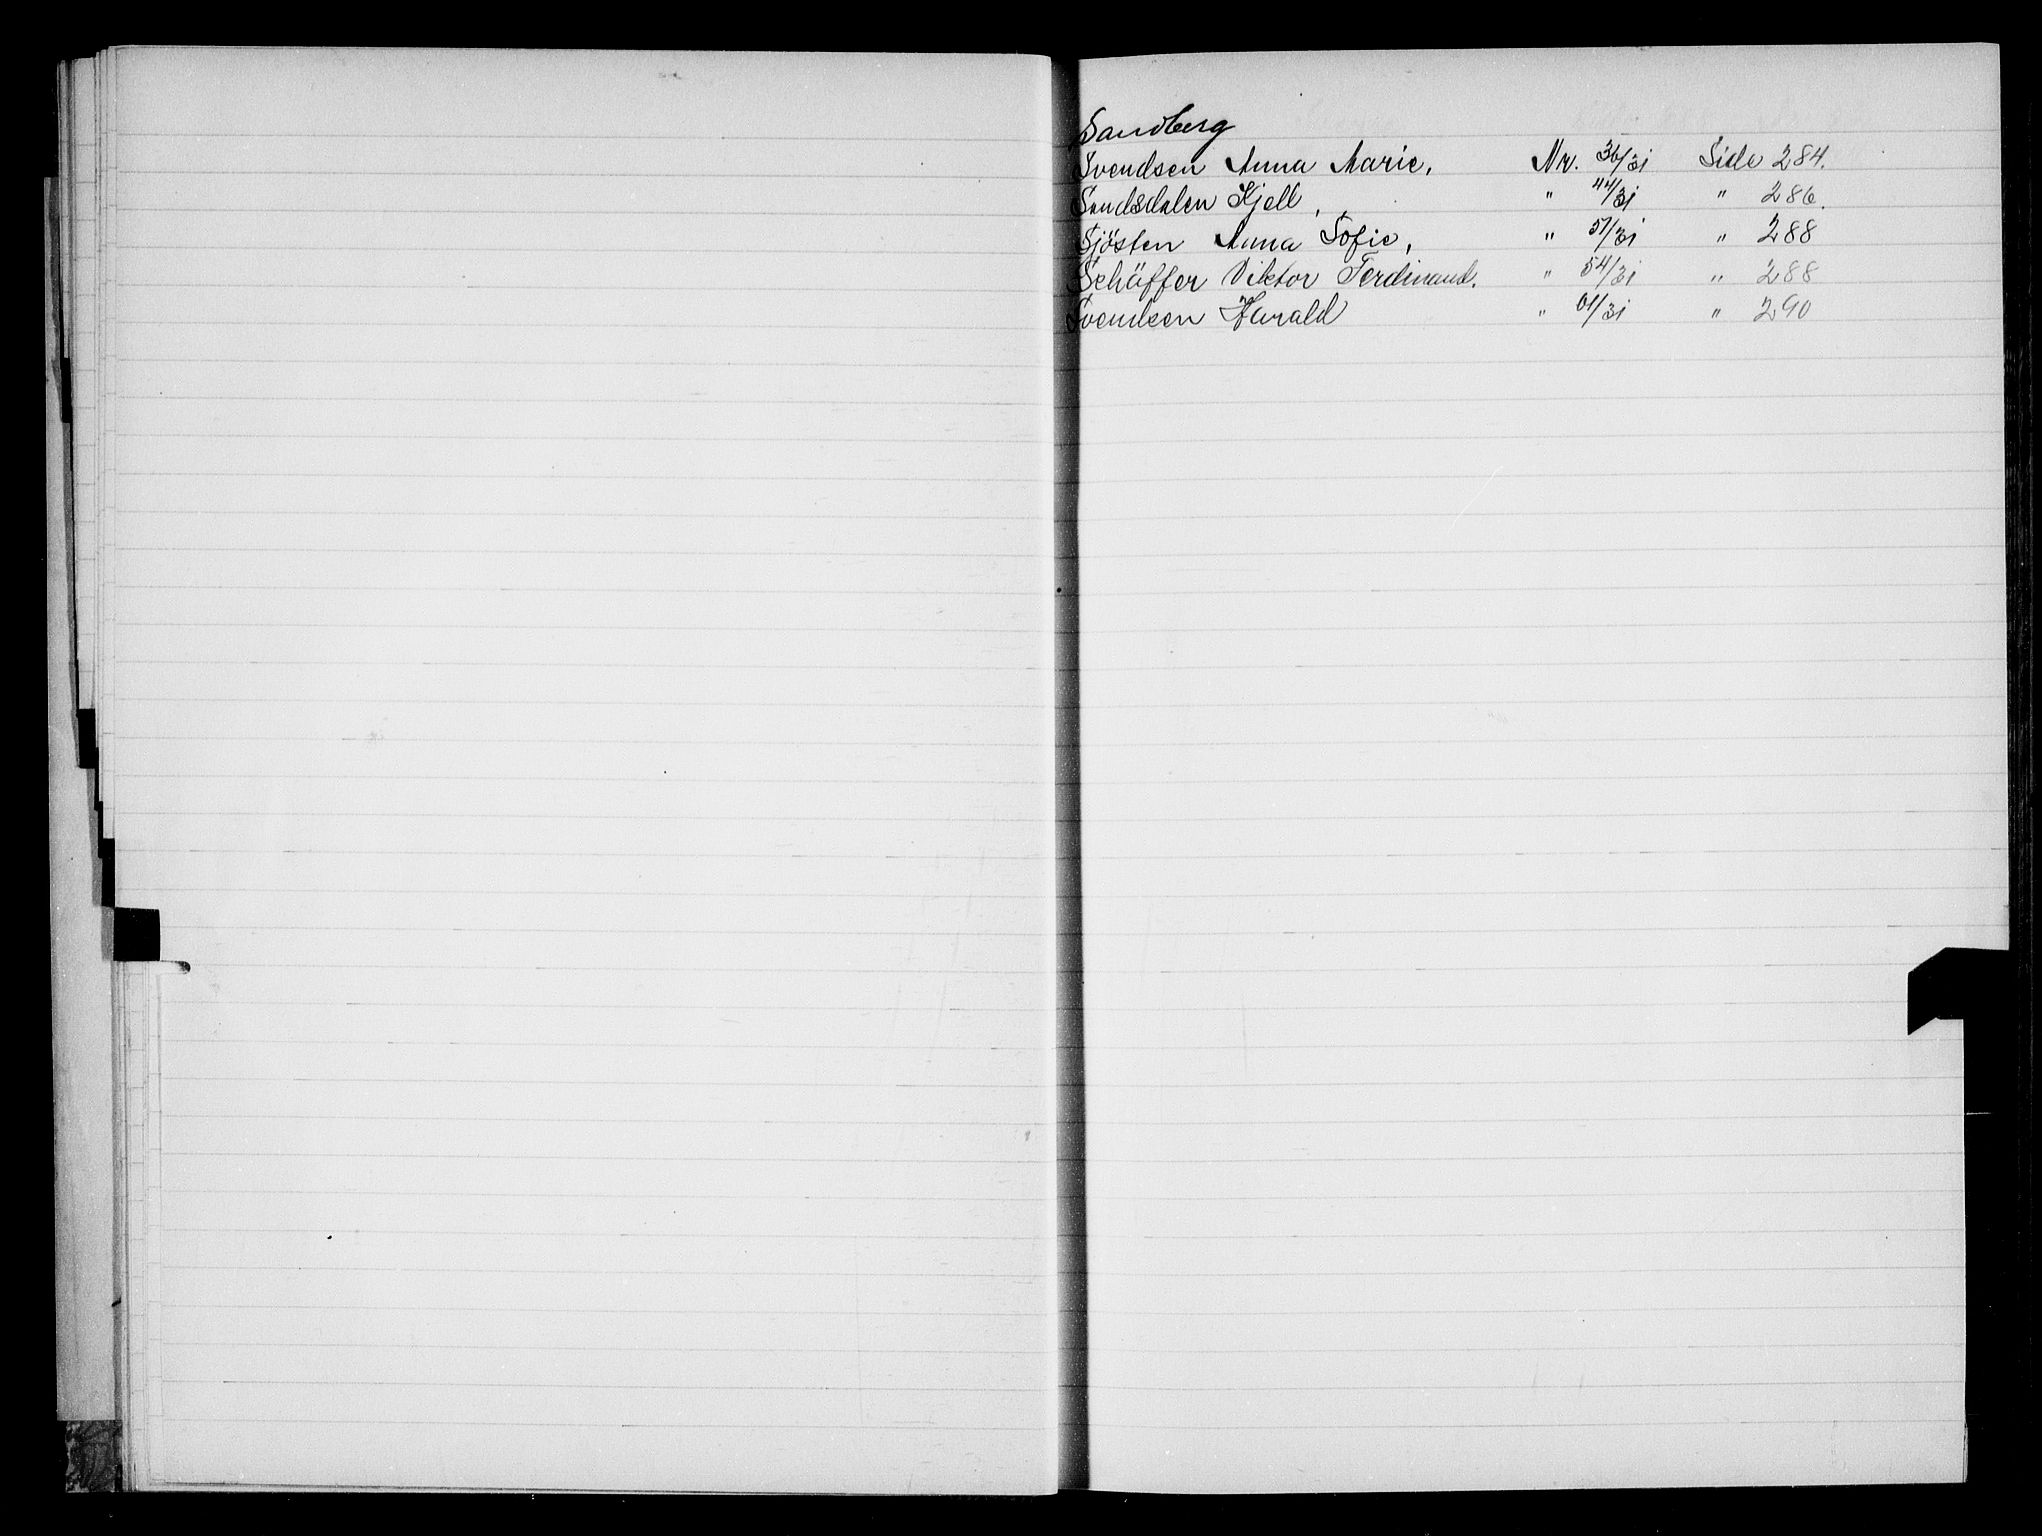 Sandberg
Svendsen Anna Marie, Nr. 36/31 Side 284.
Sundsdalen Kjell, " 44/31 " 286.
Sjösten Anna Sofie, " 51/31 " 288
Schäffer Viktor Ferdinand. " 54/31 " 288
Svendsen Harald " 61/31 " 290